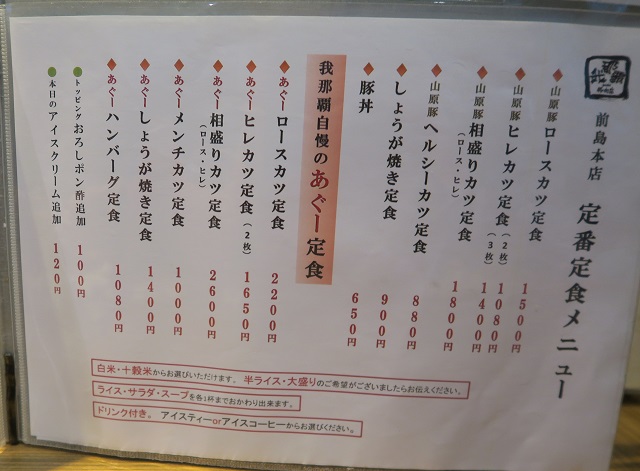 前島本店
定番定食メニュー
山原豚 ロースカツ定食 1500円
山原豚 ヒレカツ定食(2枚) 1080円
(3枚) 1400円
山原豚 相盛りカツ定食(ロース・ヒレ) 1800円
山原豚 ヘルシーカツ定食 880円
しょうが焼き定食 900円
豚丼 650円
我那覇自慢のあぐー定食
あぐーロースカツ定食 2200円
あぐーヒレカツ定食(2枚) 1650円
あぐー相盛りカツ定食(ロース・ヒレ) 2600円
あぐーメンチカツ定食 1000円
あぐーしょうが焼き定食 1400円
あぐーハンバーグ定食 1080円
トッピング おろしポン酢追加 100円
本日のアイスクリーム追加 120円
白米・十穀米からお選びいただけます。半ライス・大盛りのご希望がございましたらお伝えください。
ライス・サラダ・スープを各1杯までおかわり出来ます。
ドリンク付き。 アイスティーorアイスコーヒーからお選びください。